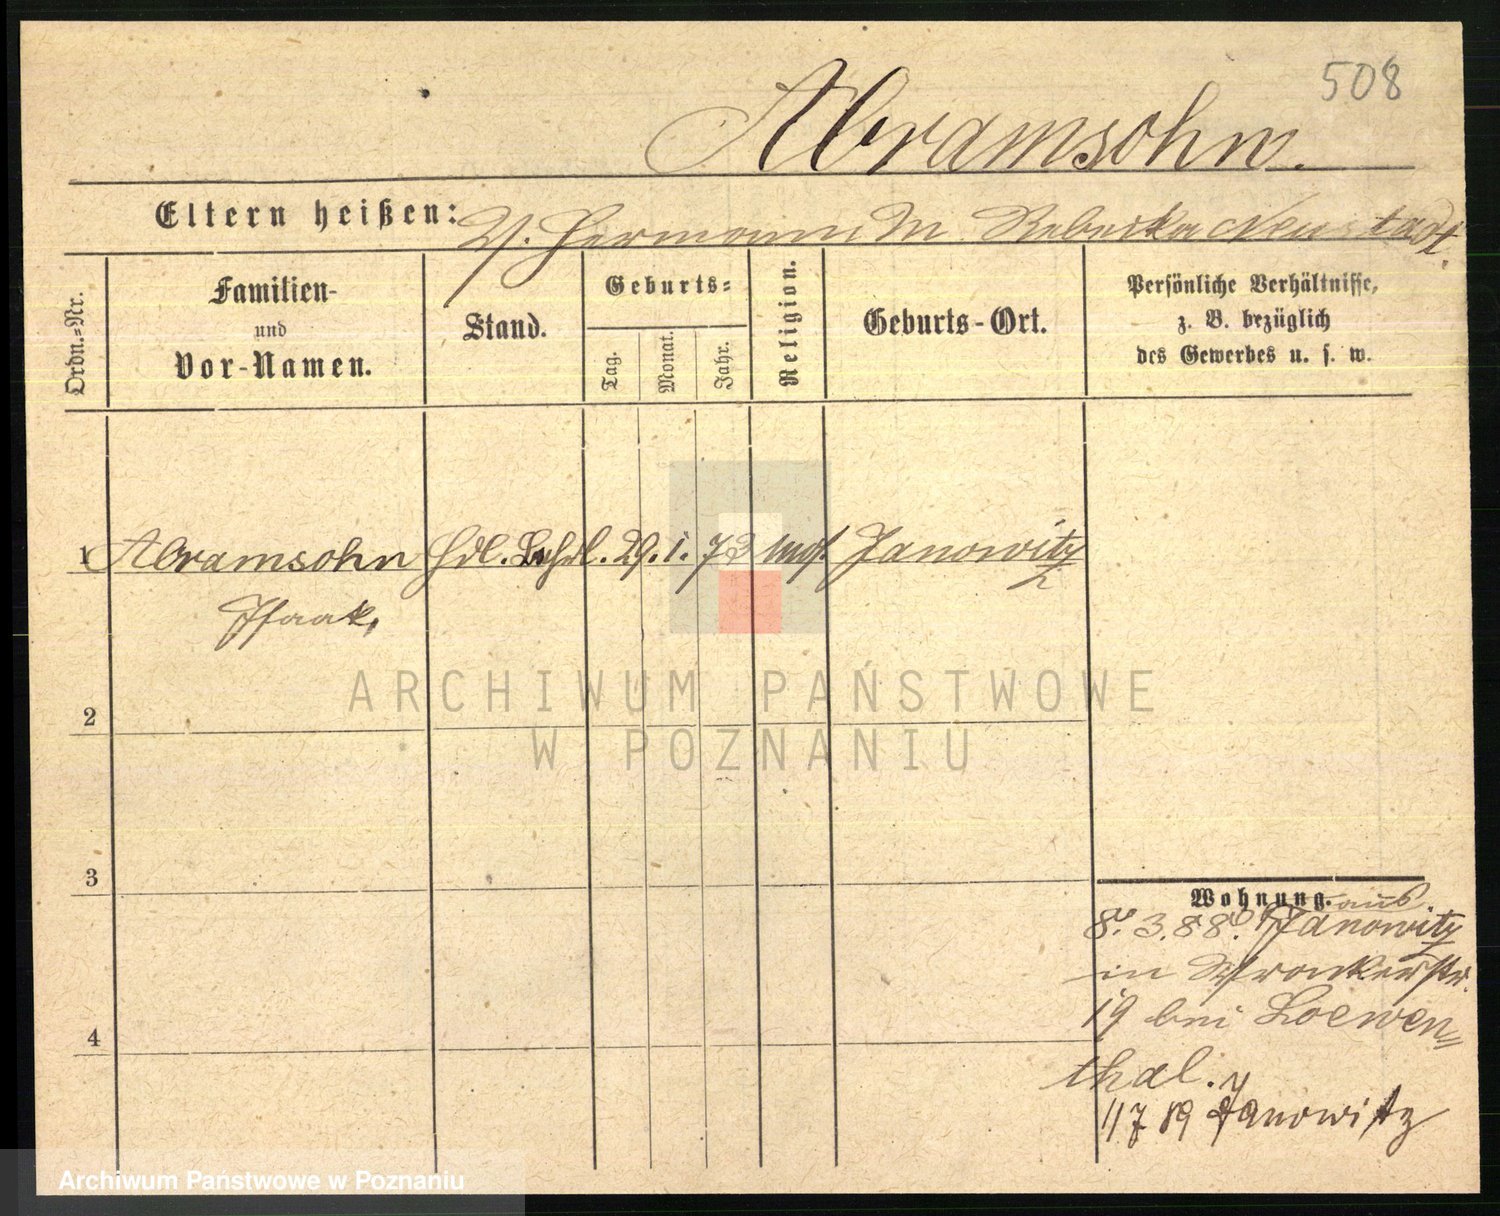 508
Abramsohn.
Eltern heißen: V. Hermann M. Rebecka Neustadt.
Ordn.=Nr.
Familien-
und
Vor-Namen.
Stand.
Geburts=
Tag.
Monat.
Jahr.
Religion.
Geburts-Ort.
Persönliche Verhältnisse,
z. B. bezüglich
des Gewerbes u. s. w.
1 Abramsohn Hdl. Lehrl. 29. 1. 73 mos. Janowitz
Isaak,
2
3
4
Wohnung.
aus
8. 3. 88. Janowitz
in Wronkerstr.
19 bei Loewen=
thal.
11 7 89 Janowitz
ARCHIWUM PAŃSTWOWE
W POZNANIU
Archiwum Państwowe w Poznaniu